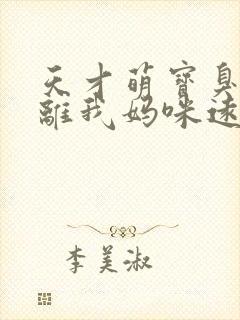 天才萌寶臭
離我媽咪遠
李美淑